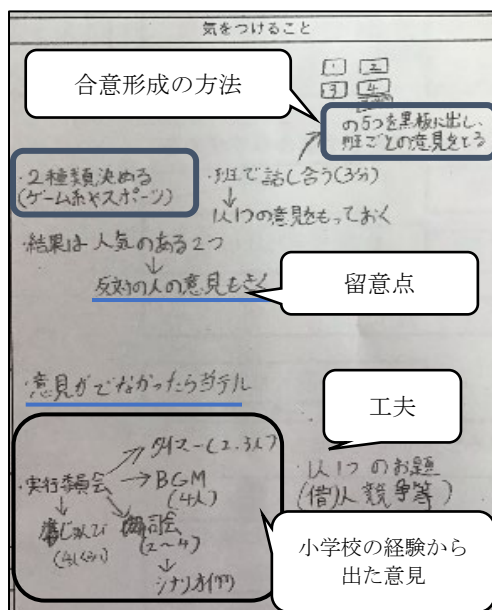 気をつけること
合意形成の方法
1 2
3 4
の5つを黒板に出し、
班ごとの意見をとる
・2種類決める
(ゲーム系やスポーツ)
・班で話し合う(3分)
↓
1人1つの意見をもっておく
・結果は人気のある2つ
↓
反対の人の意見もきく
留意点
・意見がでなかったら当テル
工夫
・実行委員会
→BGM
(4人)
司会
(2〜4)
↓
・1人1つのお題
(借)人競争等)
小学校の経験から
出た意見